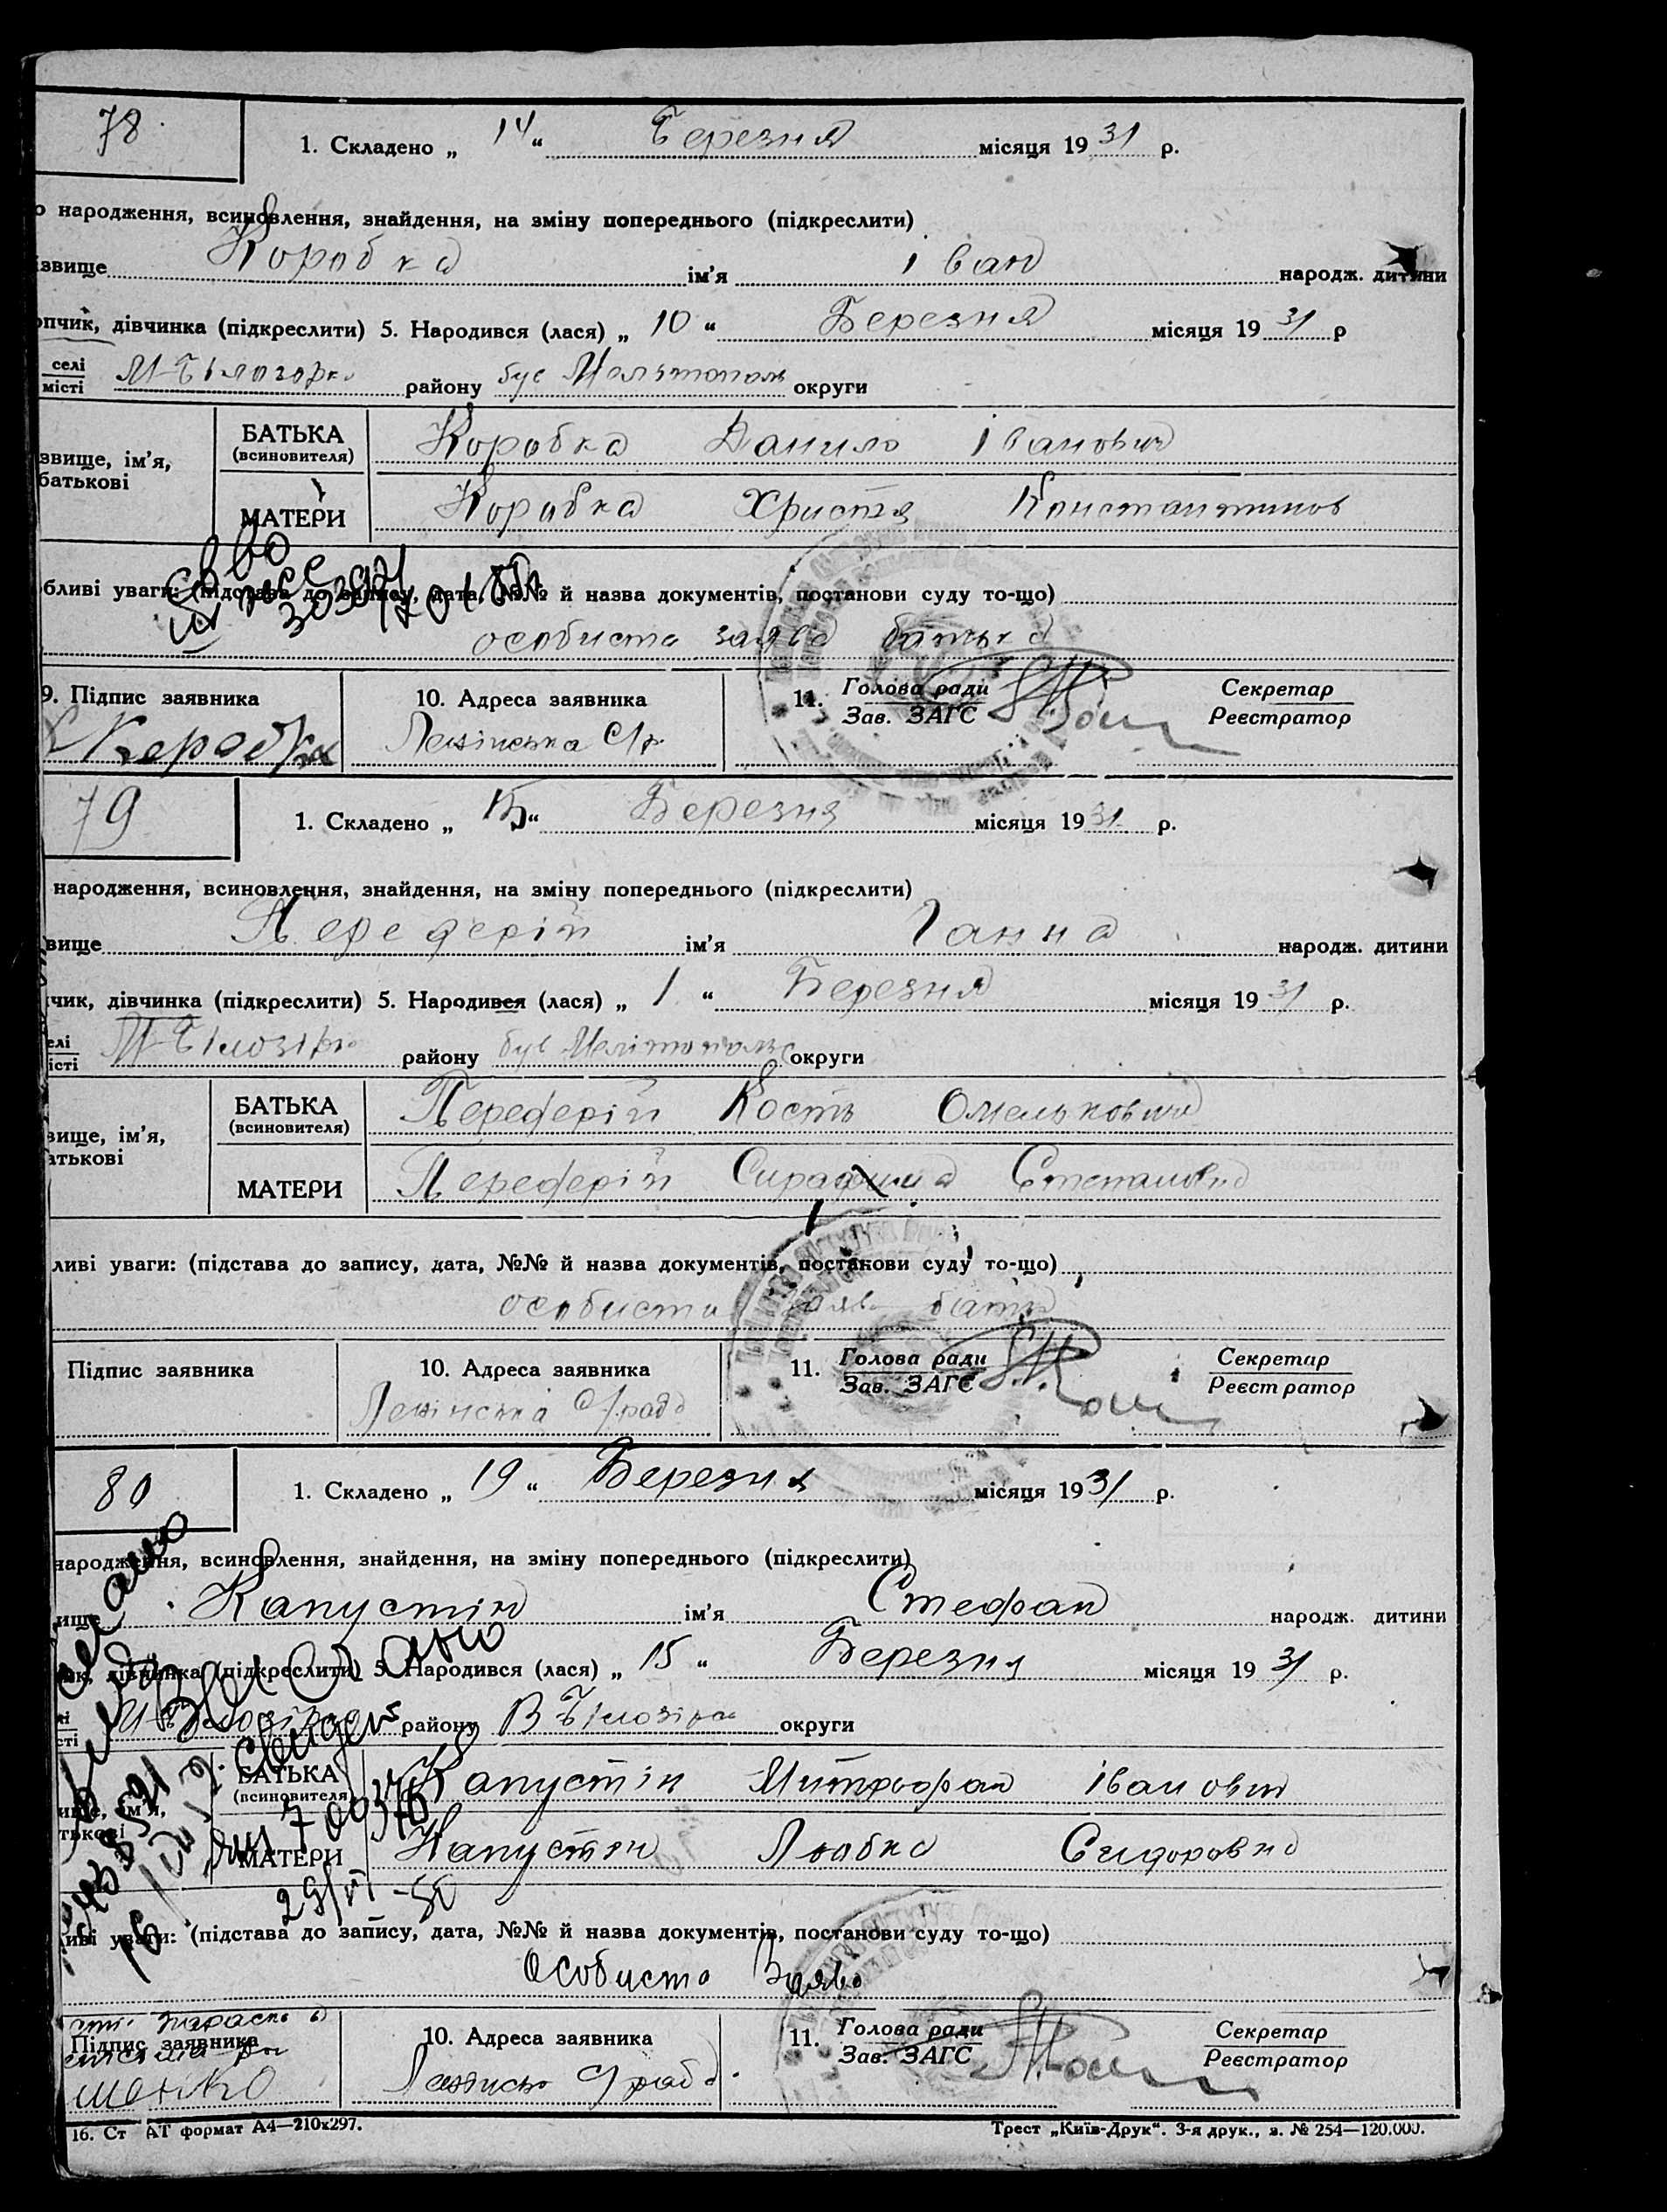 78
1. Складено „ 14 “ Березня місяця 1931 р.
о народження, всиновлення, знайдення, на зміну попереднього (підкреслити)
ізвище Коробка ім’я Іван народж. дитини
опчик, дівчинка (підкреслити) 5. Народився (лася) „ 10 “ Березня місяця 1931 р
селі
місті М-Білозорка району був Мелітополь округи
БАТЬКА
(всиновителя) Коробка Данило Іванович
звище, ім’я,
батькові
МАТЕРИ Коробка Христя Константинов
обливі уваги: (підстава до запису, дата, №№ й назва документів, постанови суду то-що)
особиста заява батька
9. Підпис заявника 10. Адреса заявника 11. Голова ради Секретар
Зав. ЗАГС Реєстратор
Коробка Ленінська С/р.
79
1. Складено „ 15 “ Березня місяця 1931 р.
народження, всиновлення, знайдення, на зміну попереднього (підкреслити)
вище Передерій ім’я Ганна народж. дитини
чик, дівчинка (підкреслити) 5. Народився (лася) „ 1 “ Березня місяця 1931 р.
елі
істі М-Білозірка району був Мелітопольс округи
БАТЬКА
(всиновителя) Передерій Кость Омелькович
вище, ім’я,
атькові
МАТЕРИ Передерій Сирафима Степановна
ливі уваги: (підстава до запису, дата, №№ й назва документів, постанови суду то-що)
особиста заява батька
Підпис заявника 10. Адреса заявника 11. Голова ради Секретар
Зав. ЗАГС Реєстратор
Ленінська С/рада
80
1. Складено „ 19 “ Березня місяця 1931 р.
народження, всиновлення, знайдення, на зміну попереднього (підкреслити)
ище Капустін ім’я Стефан народж. дитини
ик, дівчинка (підкреслити) 5. Народився (лася) „ 15 “ Березня місяця 1931 р.
лі
сті М-Білозірка району В Білозірка округи
БАТЬКА
(всиновителя) Капустін Митрофан Іванович
ище, ім’я,
тькові
МАТЕРИ Капустін Любка Сидоровна
29/VI-50
ливі уваги: (підстава до запису, дата, №№ й назва документів, постанови суду то-що)
Особиста Заява
Підпис заявника 10. Адреса заявника 11. Голова ради Секретар
Зав. ЗАГС Реєстратор
шенко С/рада
16. Ст АТ формат А4—210х297. Трест „Київ-Друк“. 3-я друк., з. № 254—120.000.